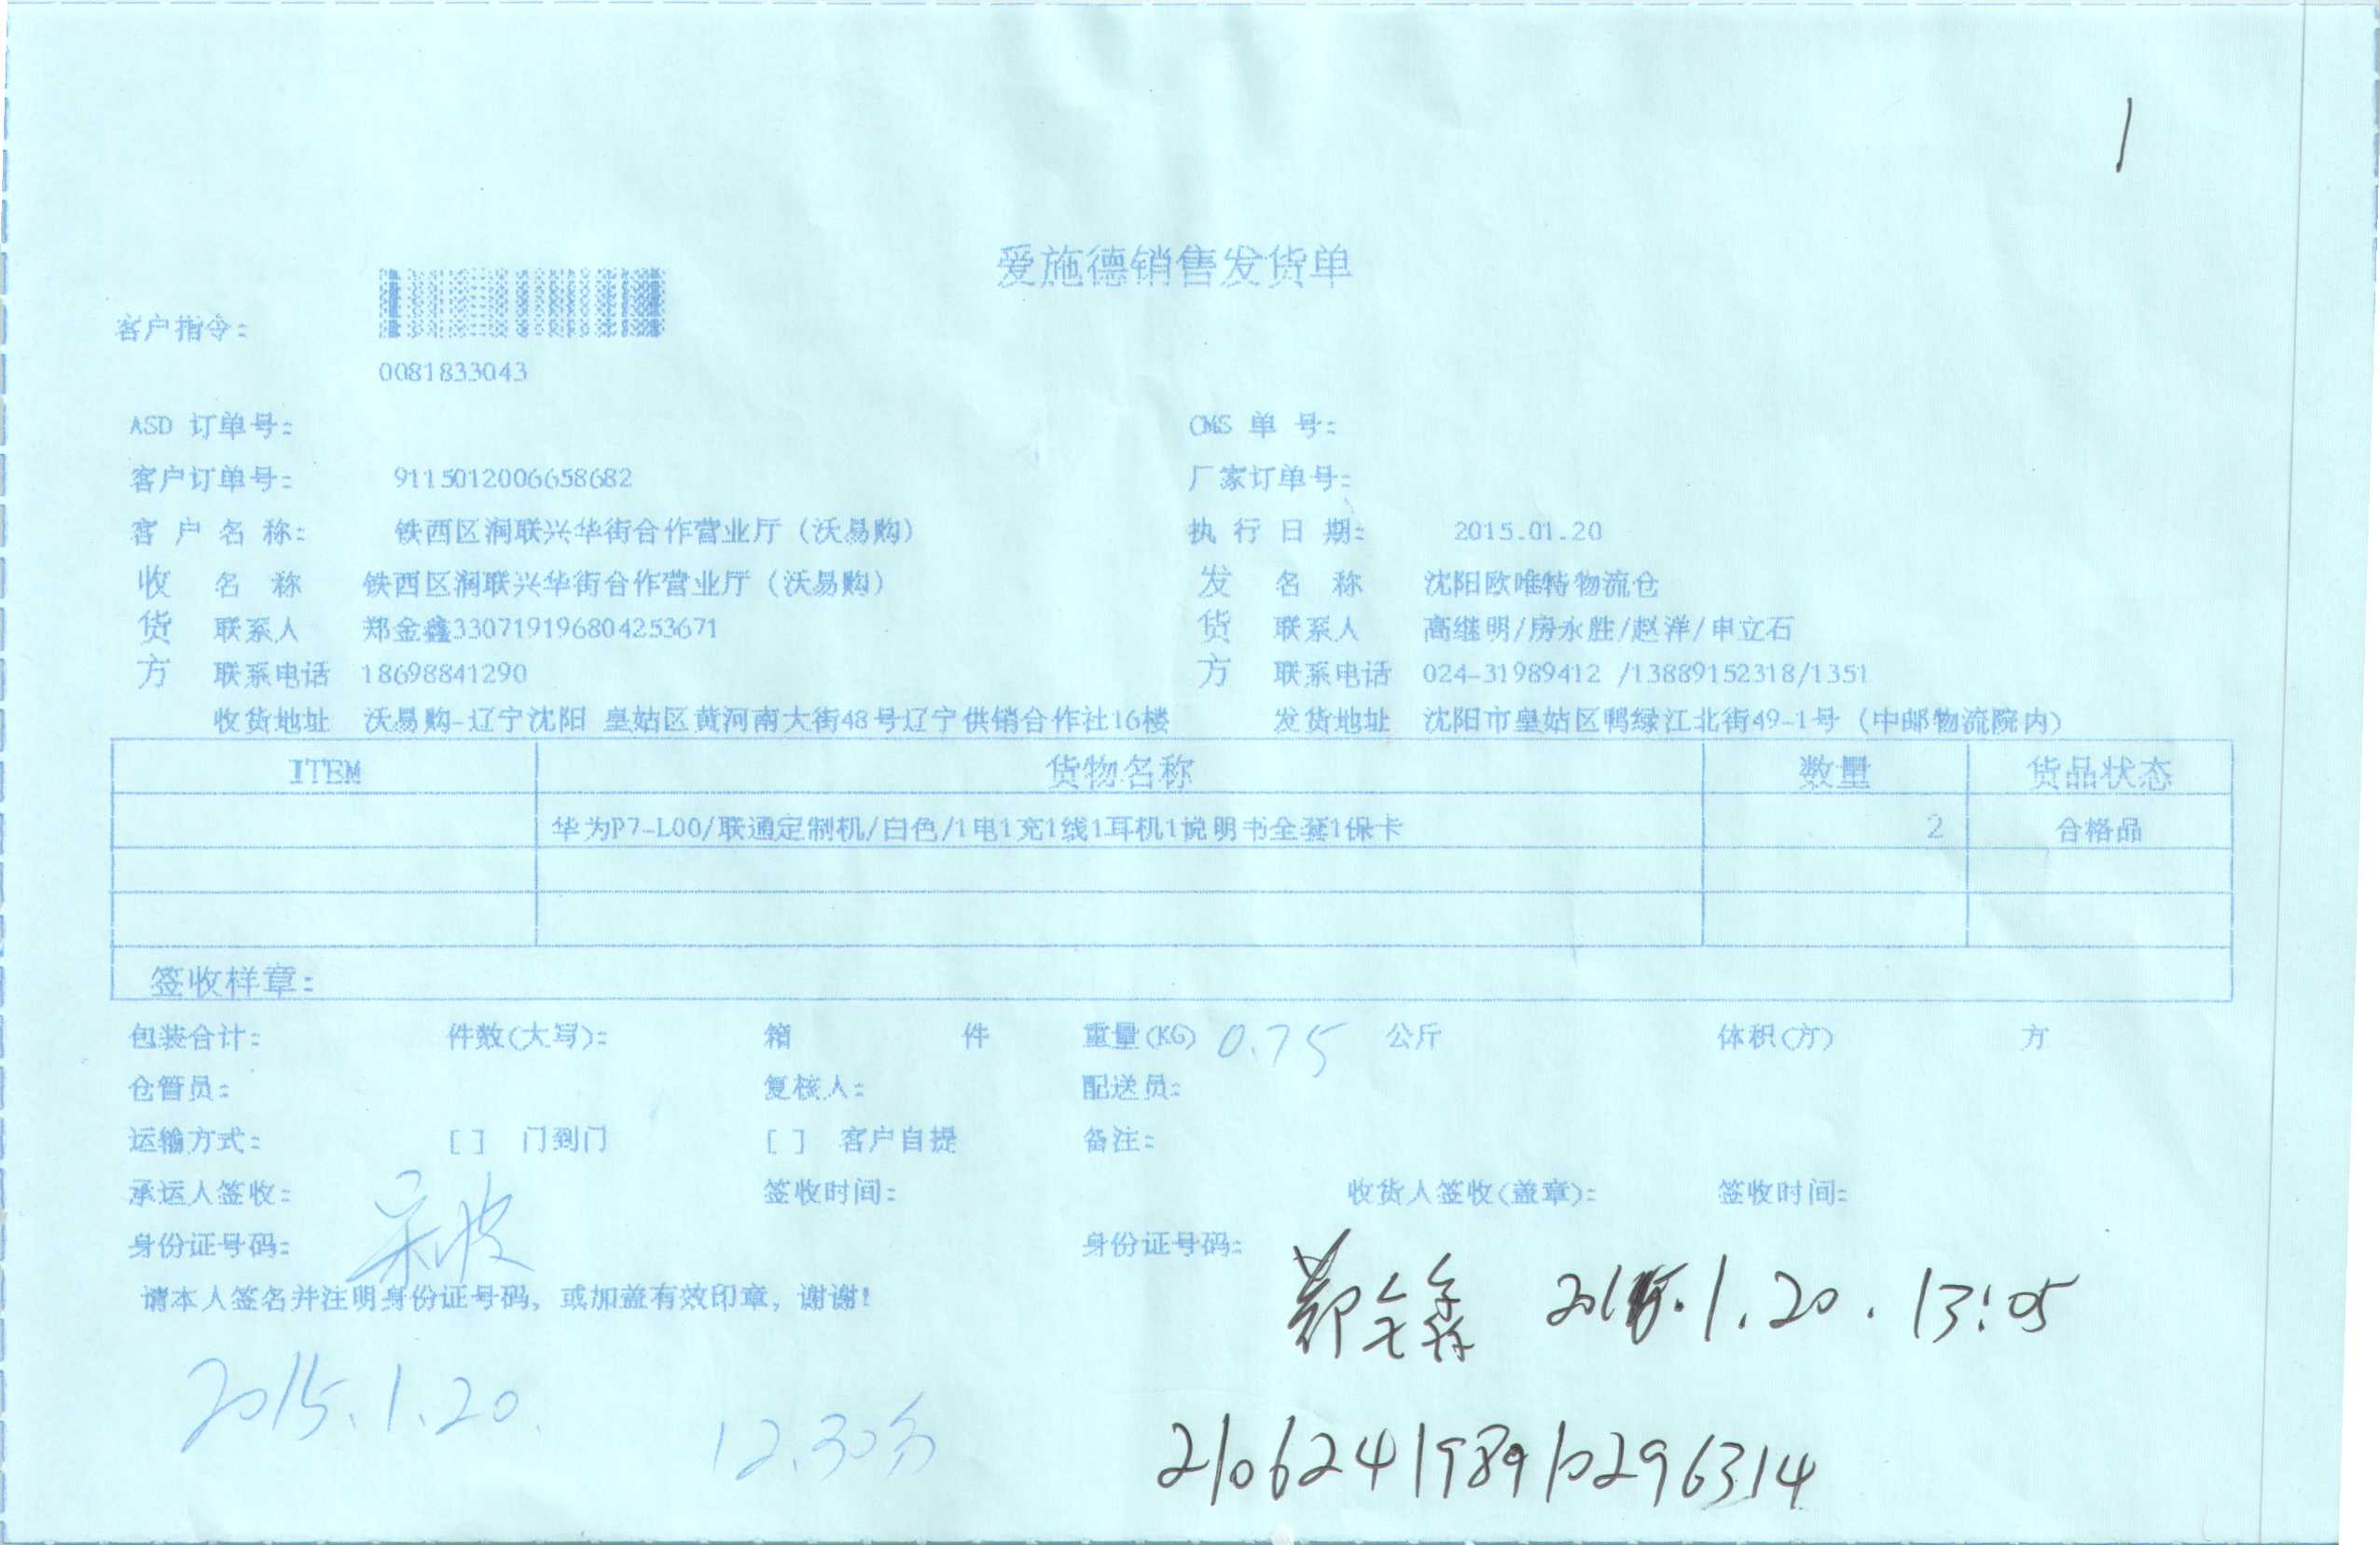 1
爱施德销售发货单
客户指令：
0081833043
ASD 订单号： CMS 单 号：
客户订单号： 9115012006658682 厂家订单号：
客 户 名 称： 铁西区润联兴华街合作营业厅（沃易购） 执 行 日 期： 2015.01.20
收 名 称 铁西区润联兴华街合作营业厅（沃易购） 发 名 称 沈阳欧唯特物流仓
货 联系人 郑金鑫330719196804253671 货 联系人 高继明/房永胜/赵洋/申立石
方 联系电话 18698841290 方 联系电话 024-31989412 /13889152318/1351
收货地址 沃易购-辽宁沈阳 皇姑区黄河南大街48号辽宁供销合作社16楼 发货地址 沈阳市皇姑区鸭绿江北街49-1号（中邮物流院内）
ITEM 货物名称 数量 货品状态
华为P7-L00/联通定制机/白色/1电1充1线1耳机1说明书全套1保卡 2 合格品
签收样章：
包装合计： 件数(大写)： 箱 件 重量(KG) 0.75 公斤 体积(方) 方
仓管员： 复核人： 配送员：
运输方式： [ ] 门到门 [ ] 客户自提 备注：
承运人签收： 签收时间： 收货人签收(盖章)： 签收时间：
身份证号码： 身份证号码：
请本人签名并注明身份证号码，或加盖有效印章，谢谢！
郑金鑫 2015.1.20.13:05
2015.1.20. 12.30分
210624198910296314